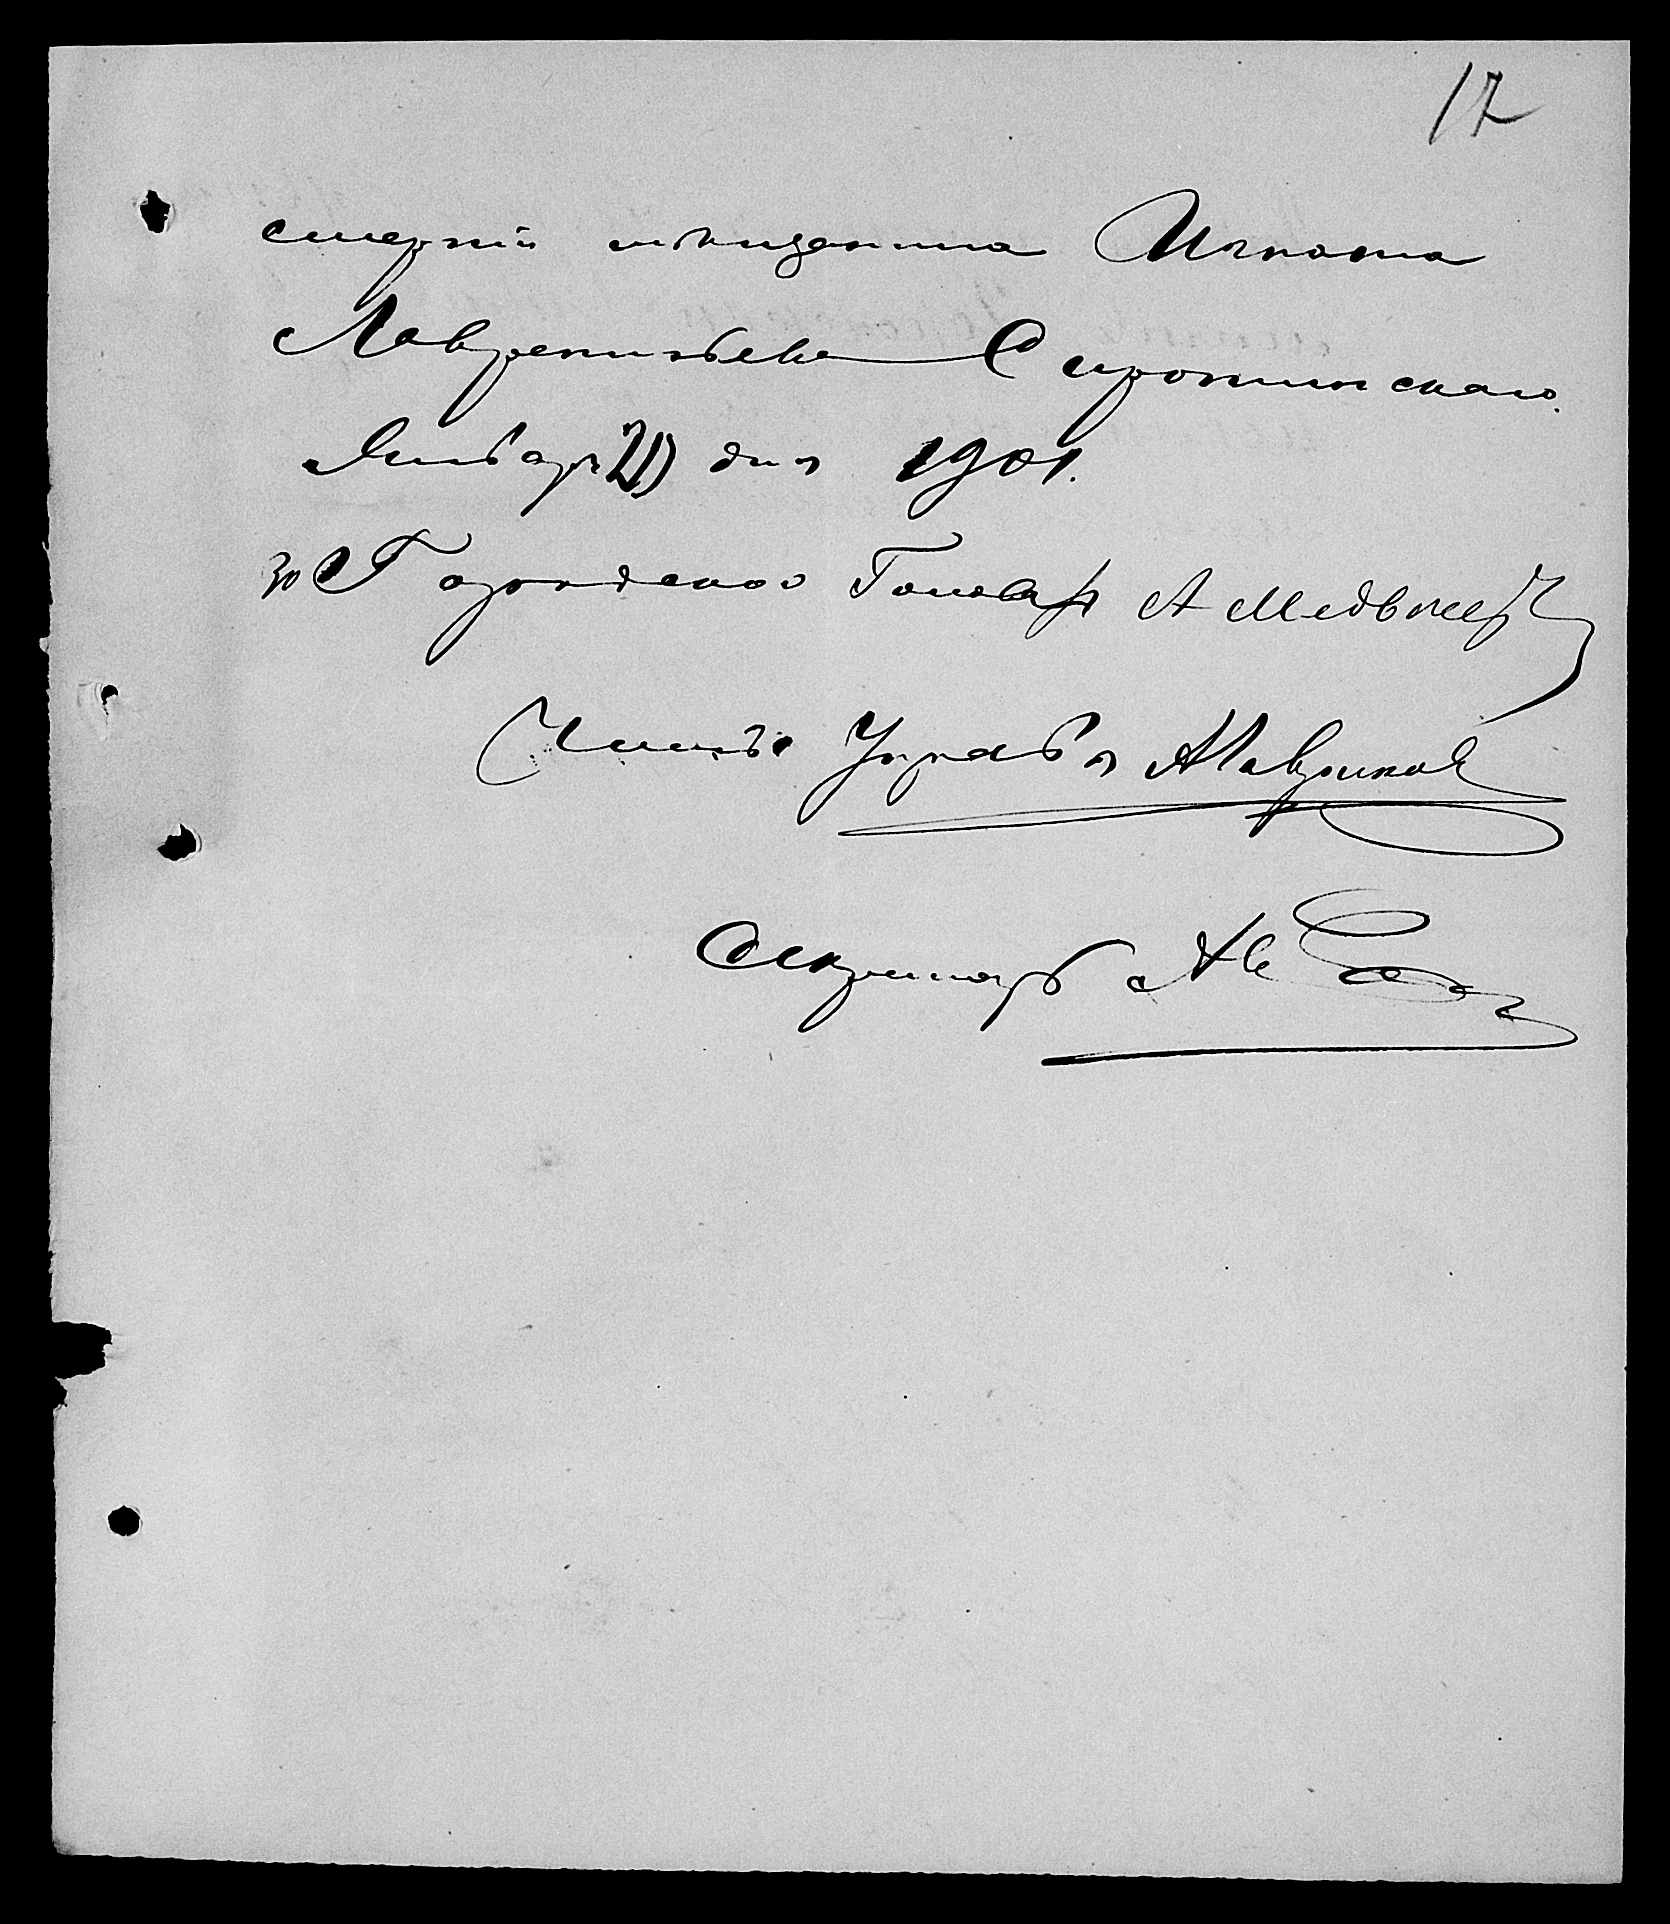 17
смертiи мѣщанина Игната
Лаврентьева Сиротинскаго.
Января 20 дня 1901.
за Городского Голову А Медвѣдев
Членъ Управы Лавриков
Секретарь А